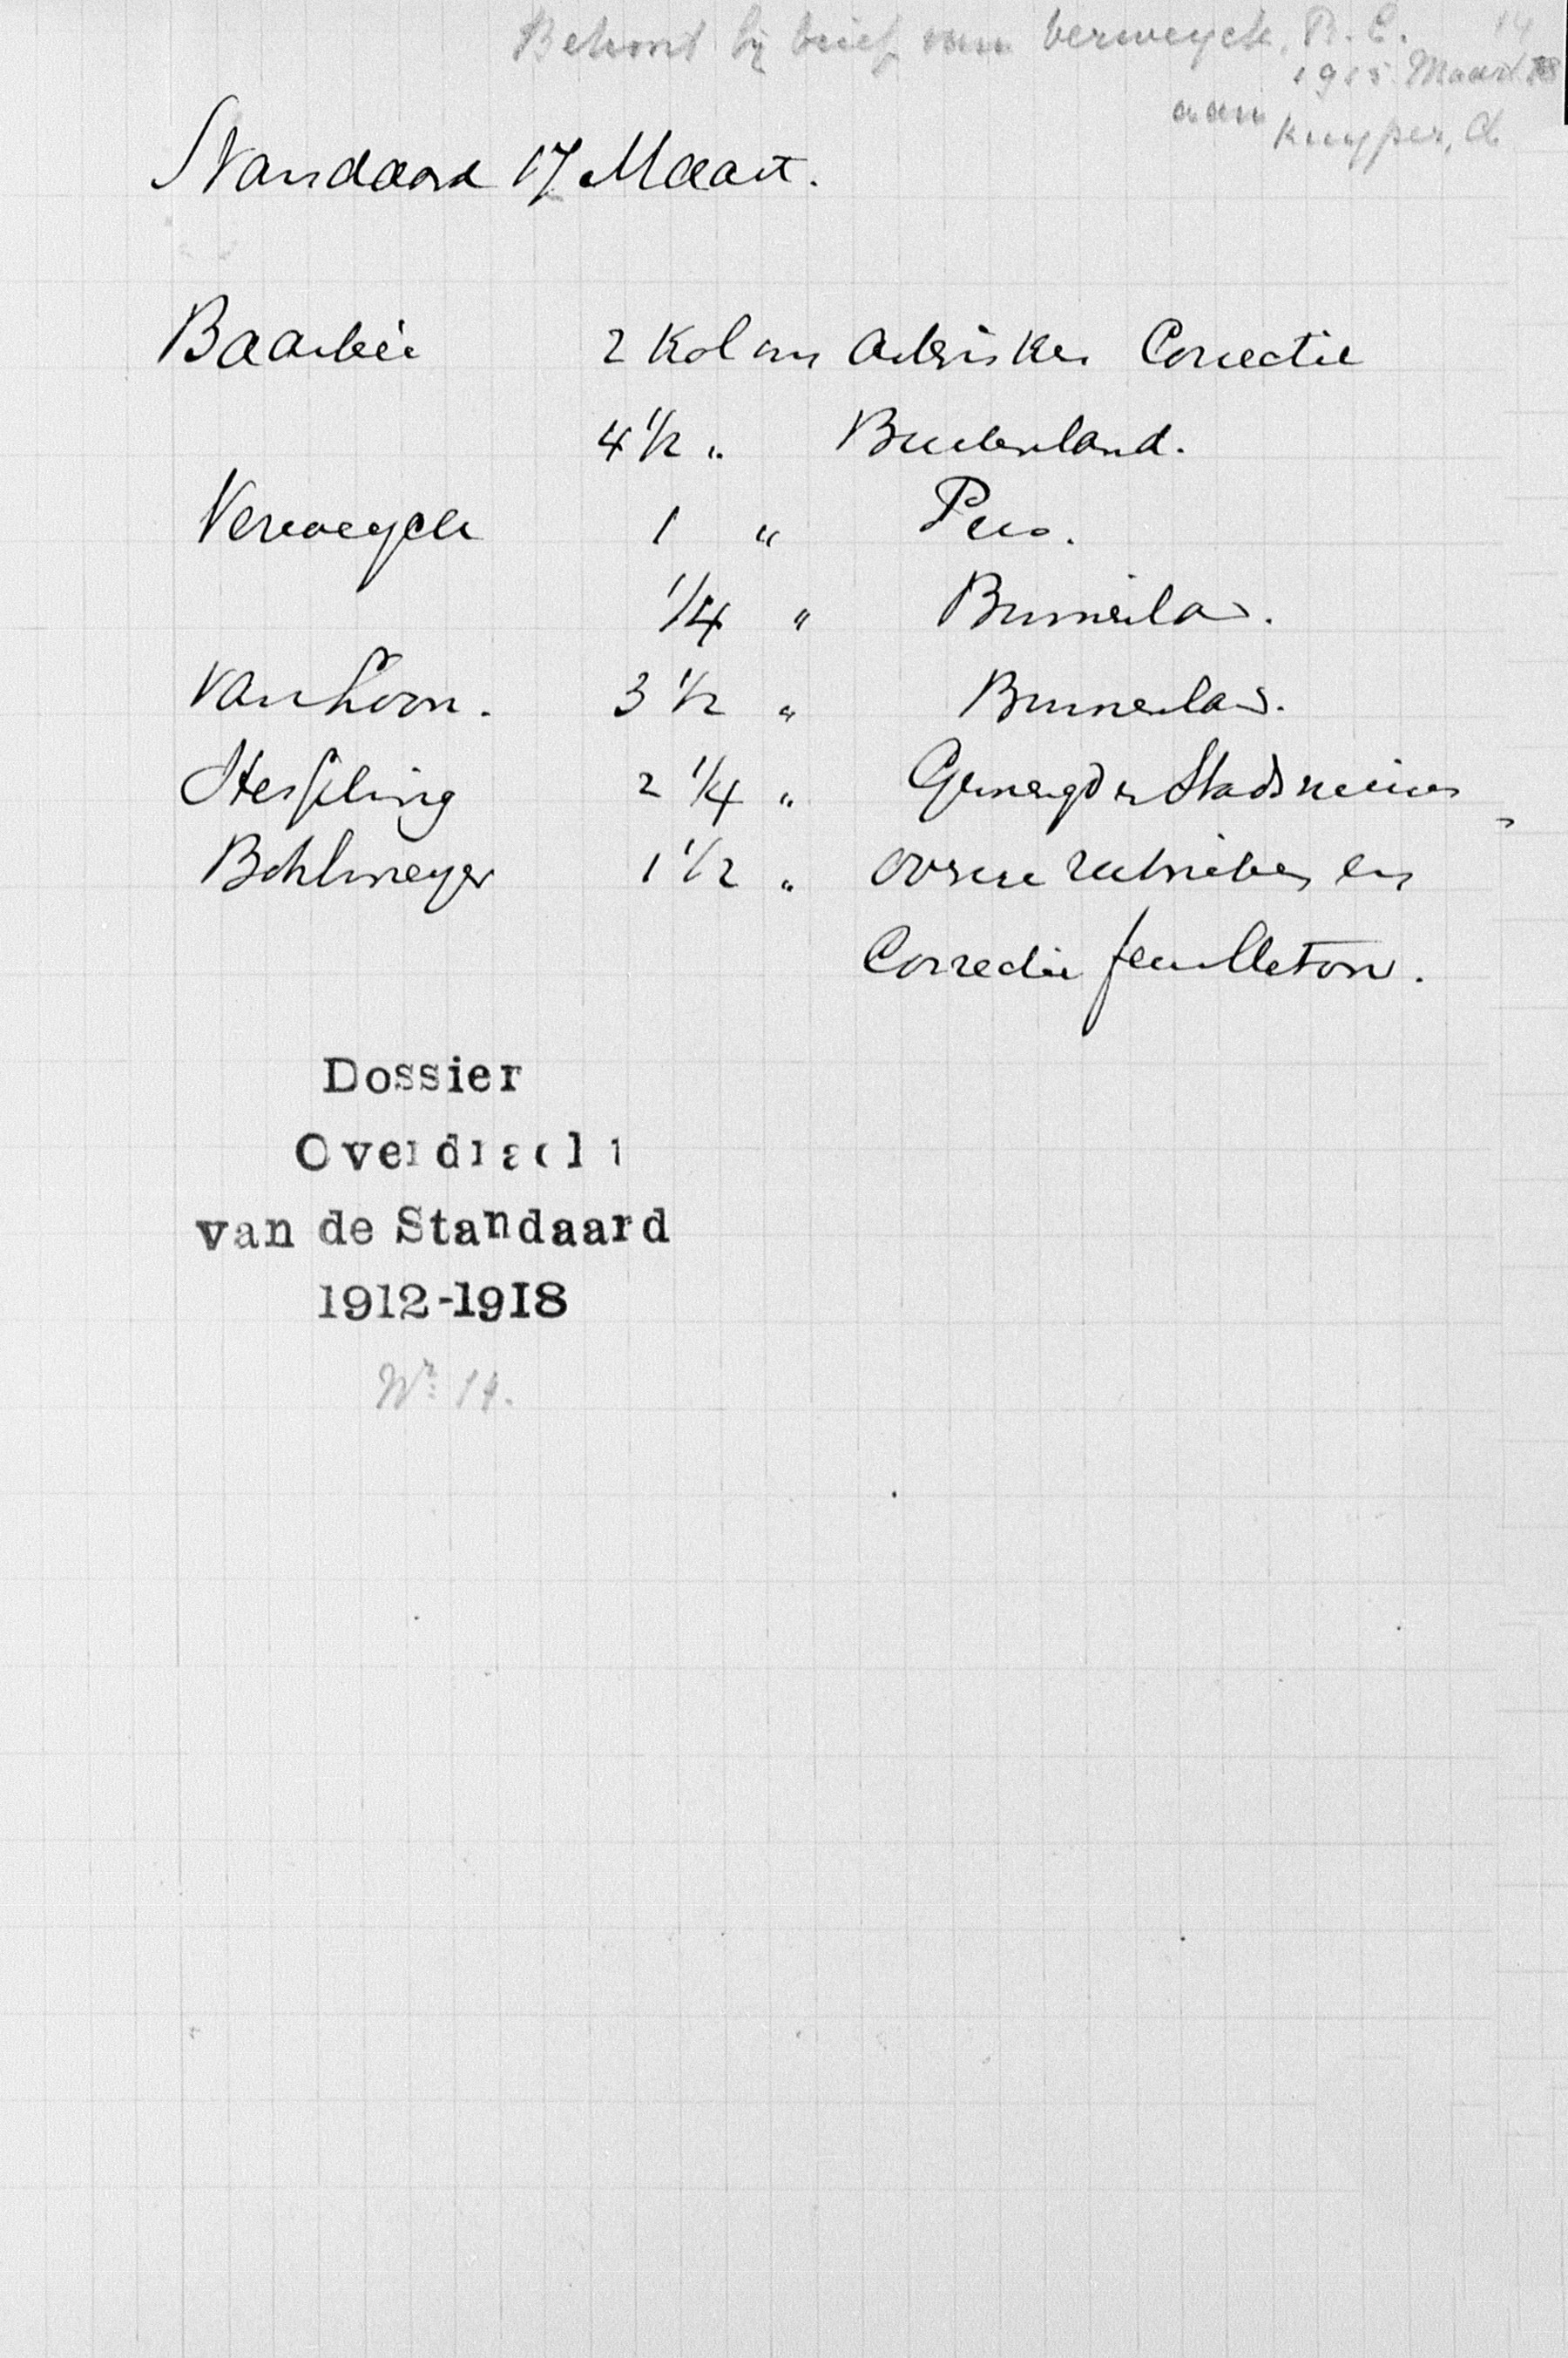 14
Behoort bij brief van Verweyck, R. C.
1915 Maart 18
aan Kuyper, A.
Standaard 17 Maart.
Baarbé 2 Kolom Asterisken Correctie
4 1/2 " Buitenland.
Verweyck 1 " Pers.
1/4 " Binnenla
van Loon. 3 1/2 " Binnenla
Hespeling 2 1/4 " Gemengd en Stadsnieuws
Bohlmeyer 1 1/2 " overige rubrieken en
Correctie feuilleton.
Dossier
Overdracht
van de Standaard
1912-1918
Nr. 14.